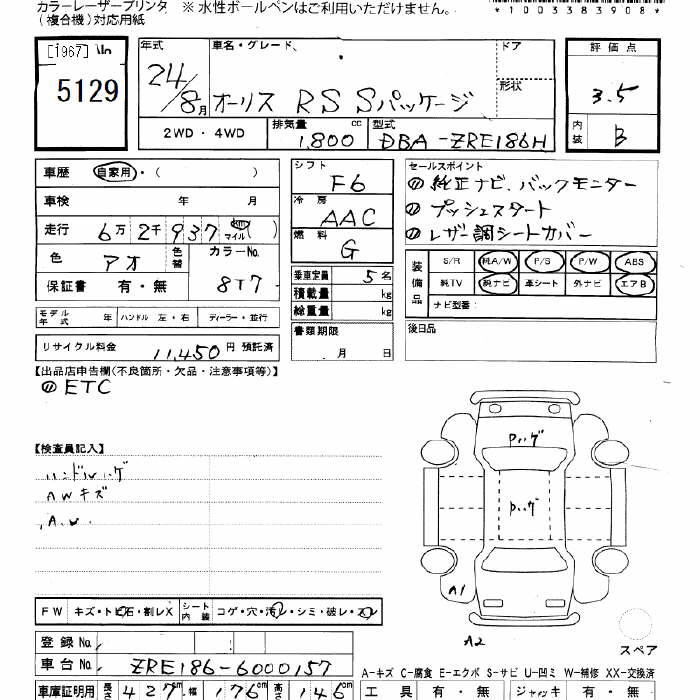 カラーレーザープリンタ ※水性ボールペンはご利用いただけません。
(複合機)対応用紙
*1003383908*
[1967]
5129
年式 24/8月
車名・グレード
オーリス RS Sパッケージ
ドア
形状
評価点 3.5
内装 B
2WD・4WD
排気量 1,800 cc
型式 DBA-ZRE186H
車歴 自家用・( )
車検 年 月
走行 6万2千937 km マイル ( )
色 アオ 色替
カラーNo. 8T7
保証書 有・無
シフト F6
冷房 AAC
燃料 G
乗車定員 5名
積載量 kg
総重量 kg
書類期限
月 日
セールスポイント
純正ナビ、バックモニター
プッシュスタート
レザー調シートカバー
装備品 S/R 純A/W P/S P/W ABS
純TV 純ナビ 革シート 外ナビ エアB
ナビ型番:
後日品
モデル年式 年 ハンドル 左・右 ディーラー・並行
リサイクル料金 11,450 円 預託済
【出品店申告欄(不良箇所・欠品・注意事項等)】
ETC
【検査員記入】
ハンドルハゲ
AWキズ
A.W.
Pハゲ
Pハゲ
A1
A2
スペア
FW キズ・トビ石・割レX シート内装 コゲ・穴・汚レ・シミ・破レ・スレ
登録No.
車台No. ZRE186-6000157
A-キズ C-腐食 E-エクボ S-サビ U-凹ミ W-補修 XX-交換済
車庫証明用 長さ 427cm 幅 176cm 高さ 146cm
工具 有・無 ジャッキ 有・無